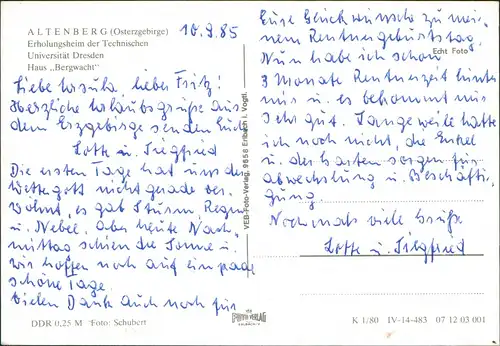 ALTENBERG (Osterzgebirge)
Erholungsheim der Technischen
Universität Dresden
Haus „Bergwacht“
10.9.85
Liebe Ursula, lieber Fritz!
Herzliche Urlaubsgrüße aus
dem Erzgebirge senden Euch
Lotte u. Siegfried
Die ersten Tage hat uns der
Wettergott nicht gerade ver-
wöhnt, es gab Sturm, Regen
u. Nebel. Aber heute Nach-
mittag schien die Sonne u.
wir hoffen noch auf ein paar
schöne Tage.
Vielen Dank auch noch für
Eure Glückwünsche zu mei-
nem Rentnergeburtstag.
Nun habe ich schon
3 Monate Rentnerzeit hinter
mir u. es bekommt mir
sehr gut. Langeweile hatte
ich noch nicht, die Enkel
u. der Garten sorgen für
Abwechslung u. Beschäfti-
gung.
Nochmals viele Grüße
Lotte u. Siegfried
Echt Foto
VEB-Foto-Verlag, 9658 Erlbach i. Vogtl.
DDR 0,25 M Foto: Schubert
VEB
FOTO-VERLAG
ERLBACH
K 1/80 IV-14-483 07 12 03 001